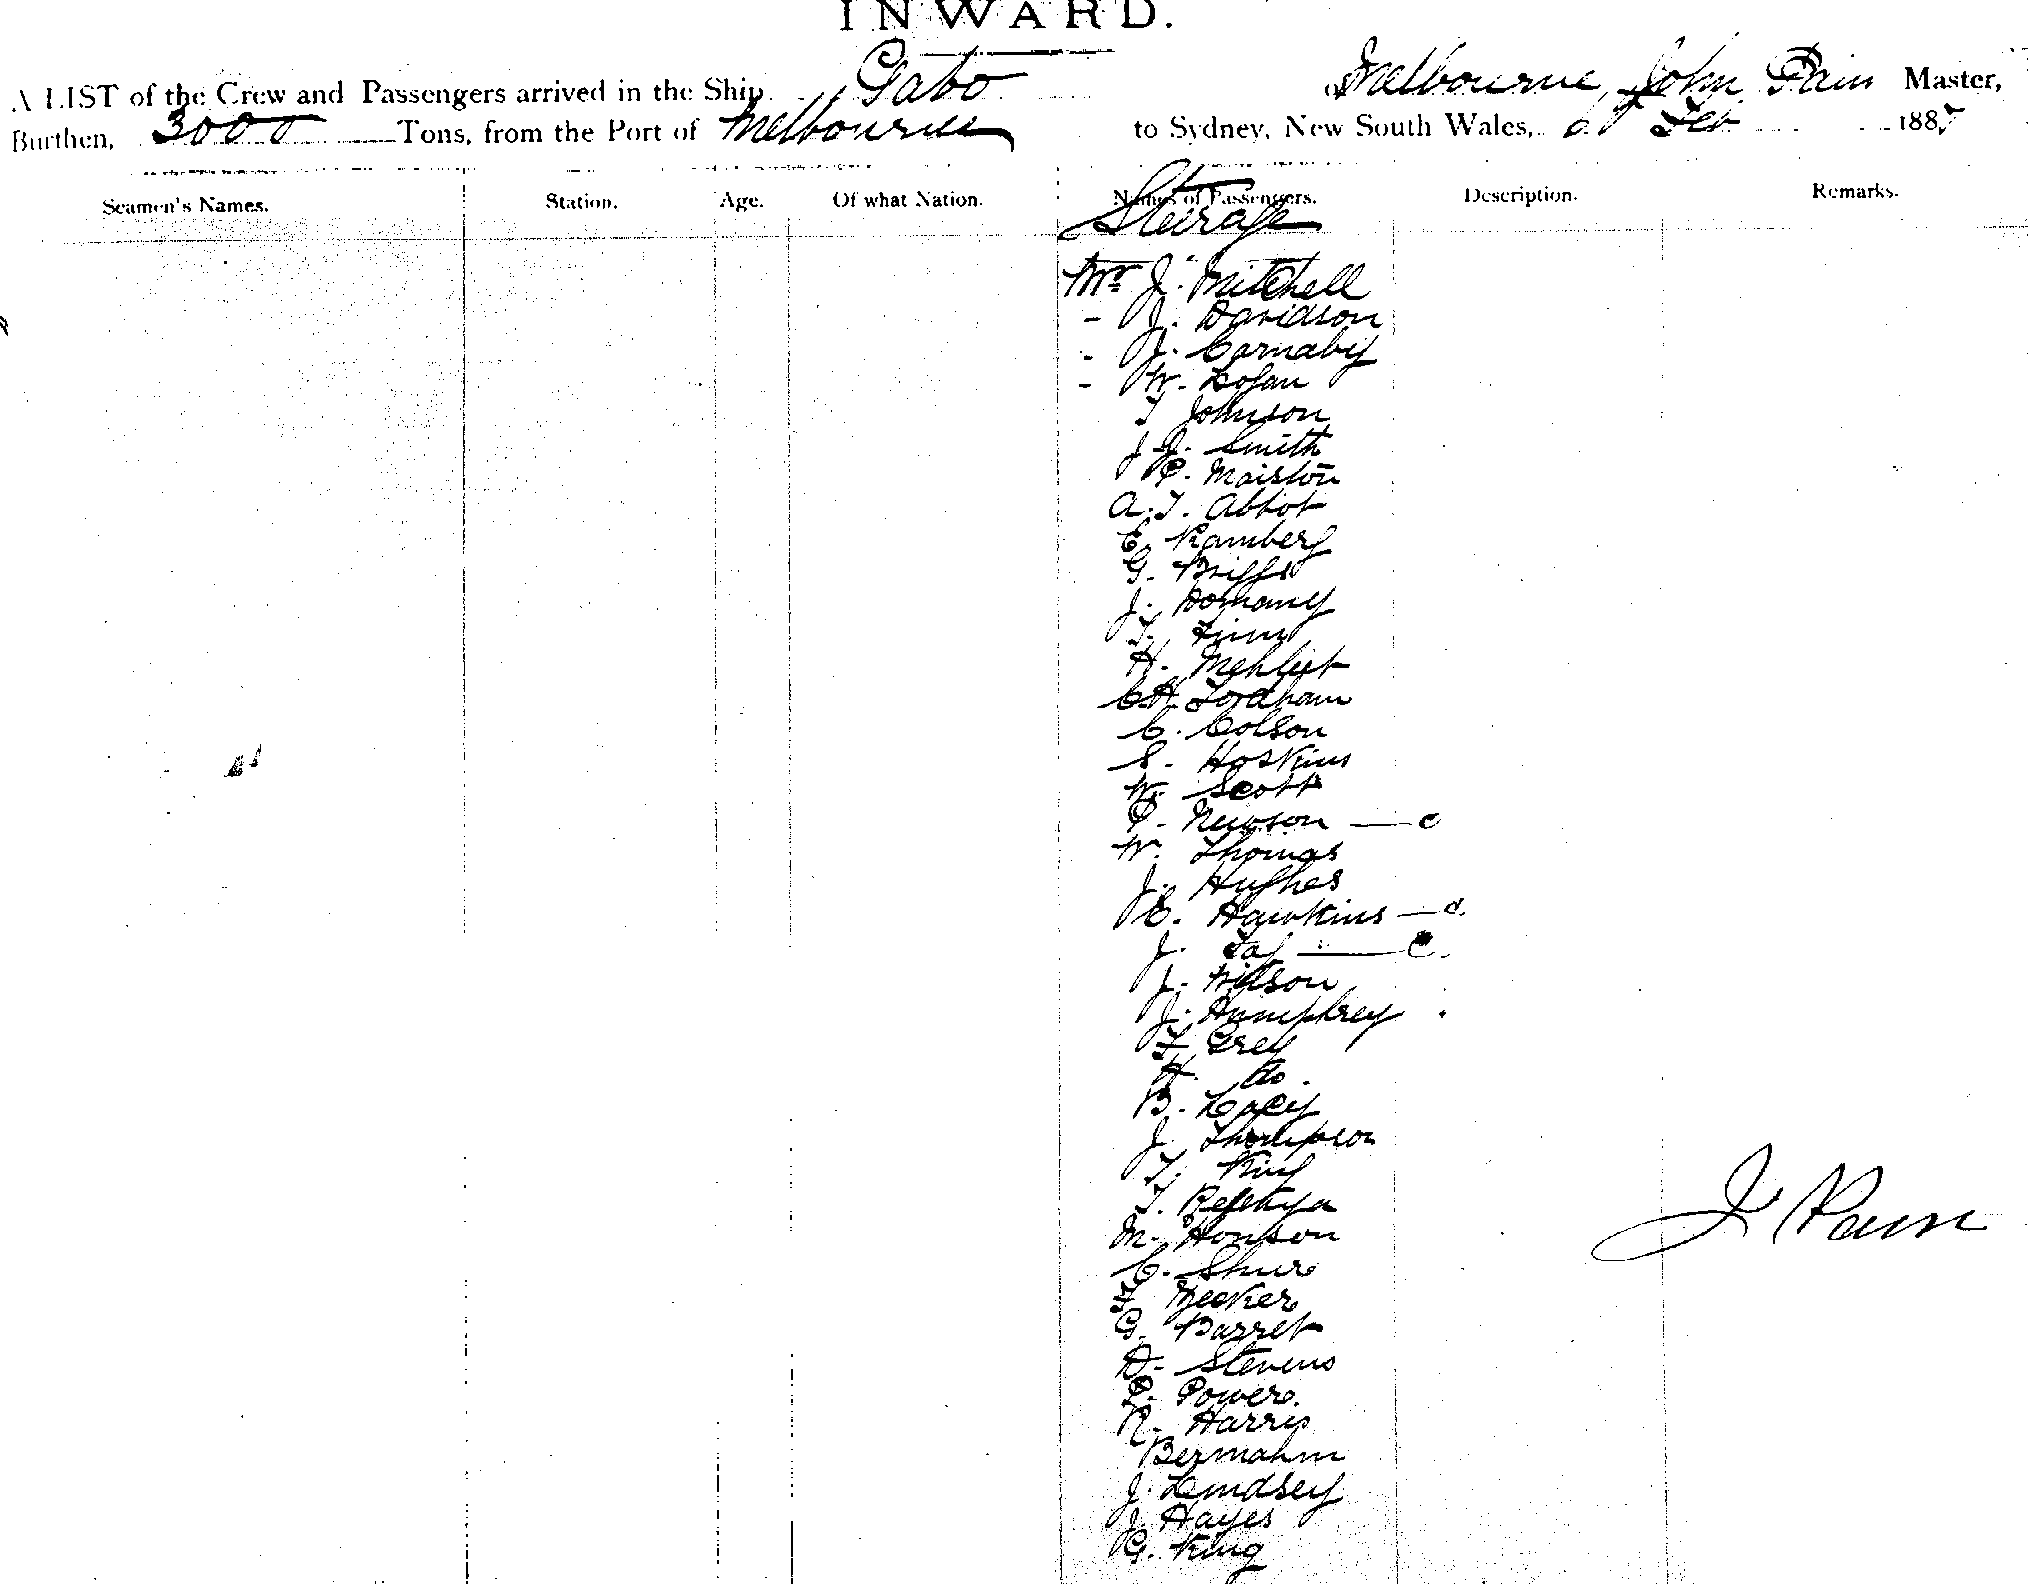 INWARD.
A LIST of the Crew and Passengers arrived in the Ship Gabo of Melbourne, John Pain Master,
Burthen, 3000 Tons, from the Port of Melbourne to Sydney, New South Wales, Feb 188
Seamen's Names. Station. Age. Of what Nation. Names of Passengers. Description. Remarks.
Steerage
Mr J. Mitchell
- J. Davidson
- J. Carnaby
- W. Logan
T Johnson
J J. Smith
P. Maiston
A. T. Abbot
E. Ramberg
G. Briggs
J.
T. Finn
H.
C H Fordham
C. Colson
S. Hoskins
W. Scott
P. Newson — c
W. Thomas
J. Hughes
C. Hawkins — c.
J. — C.
J. Wilson
J. Humphrey
F. Grey
H. do.
B. Lacy
J. Thompson
T. King
T.
M. Honson
C. Shure
F. Meeker
G. Barret
D. Stevens
P. Power.
R. Harris
Bermahm
J. Lindsey
J Hayes
G. King
J Pain